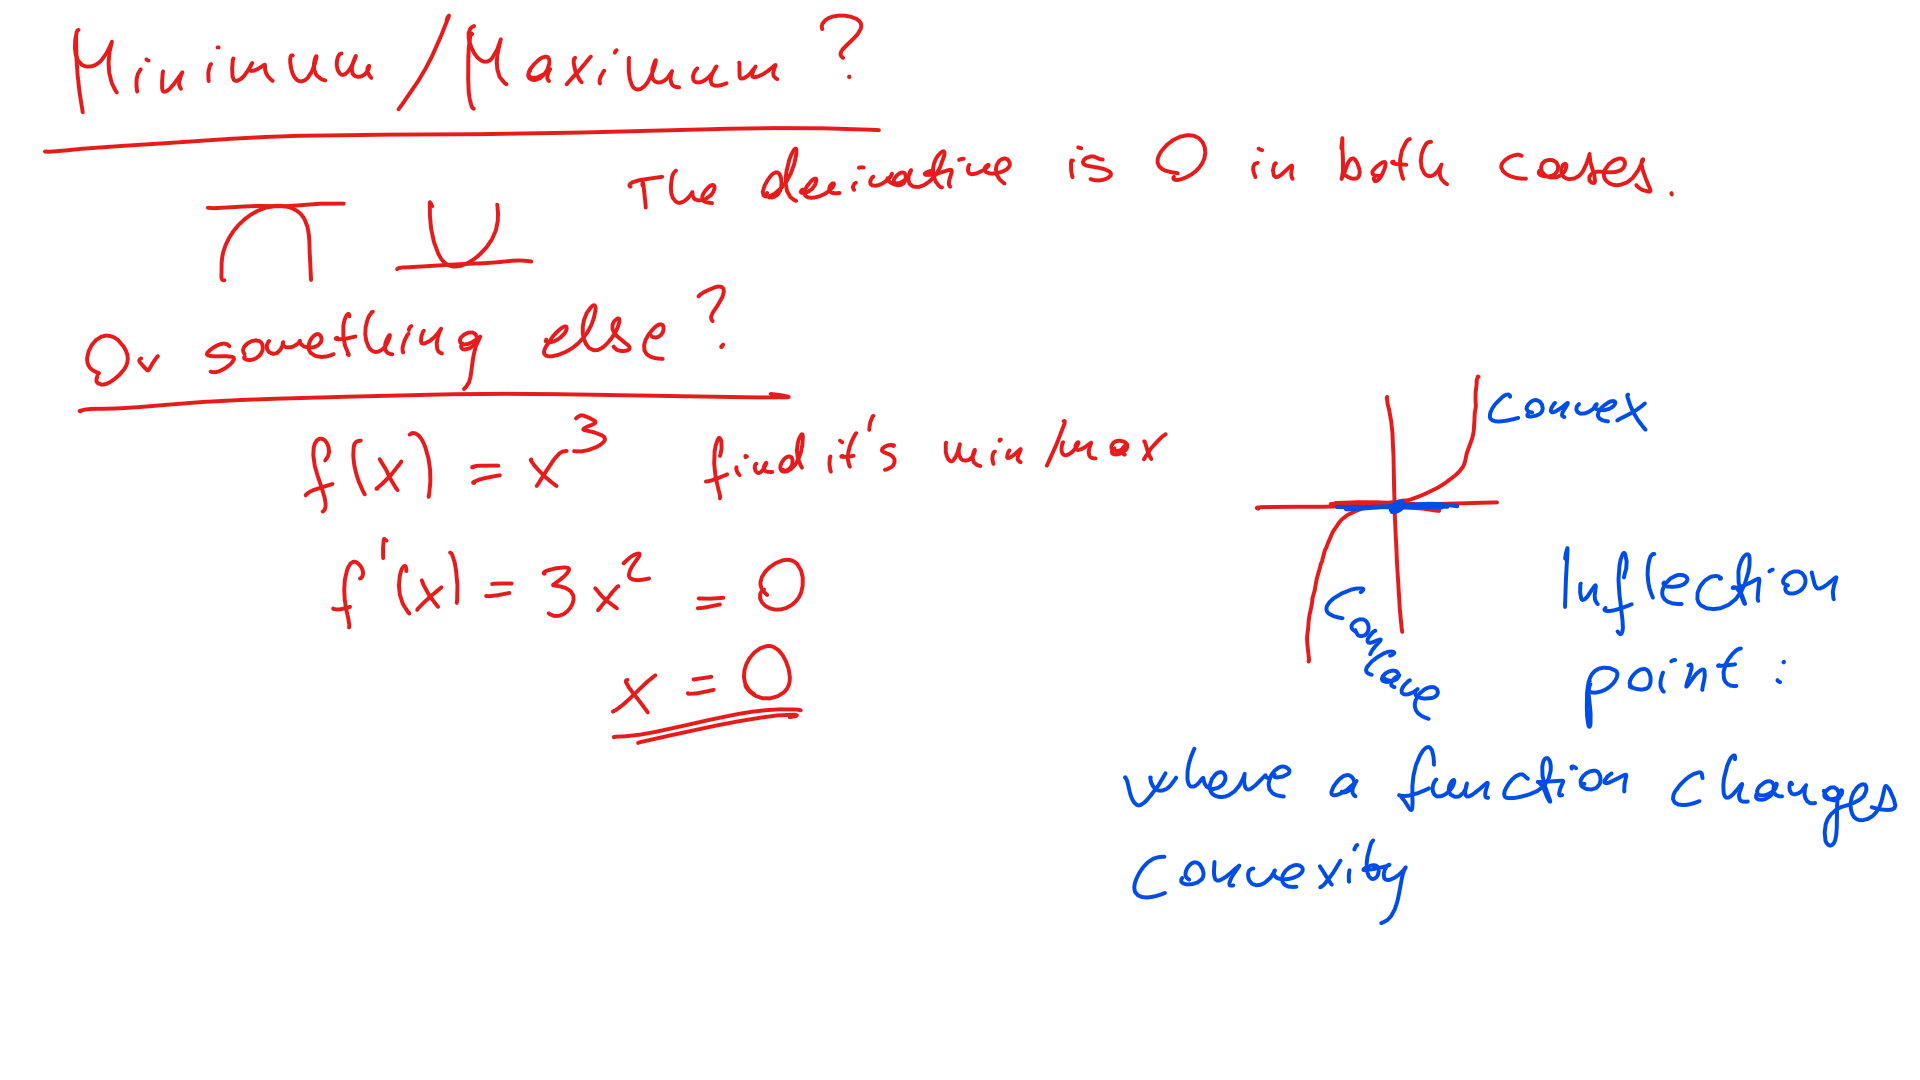 Minimum/Maximum?
The derivative is 0 in both cases.
Or something else?
f(x) = x³ find it's min/max
f'(x) = 3x² = 0
x = 0
convex
concave
Inflection
point:
where a function changes
convexity